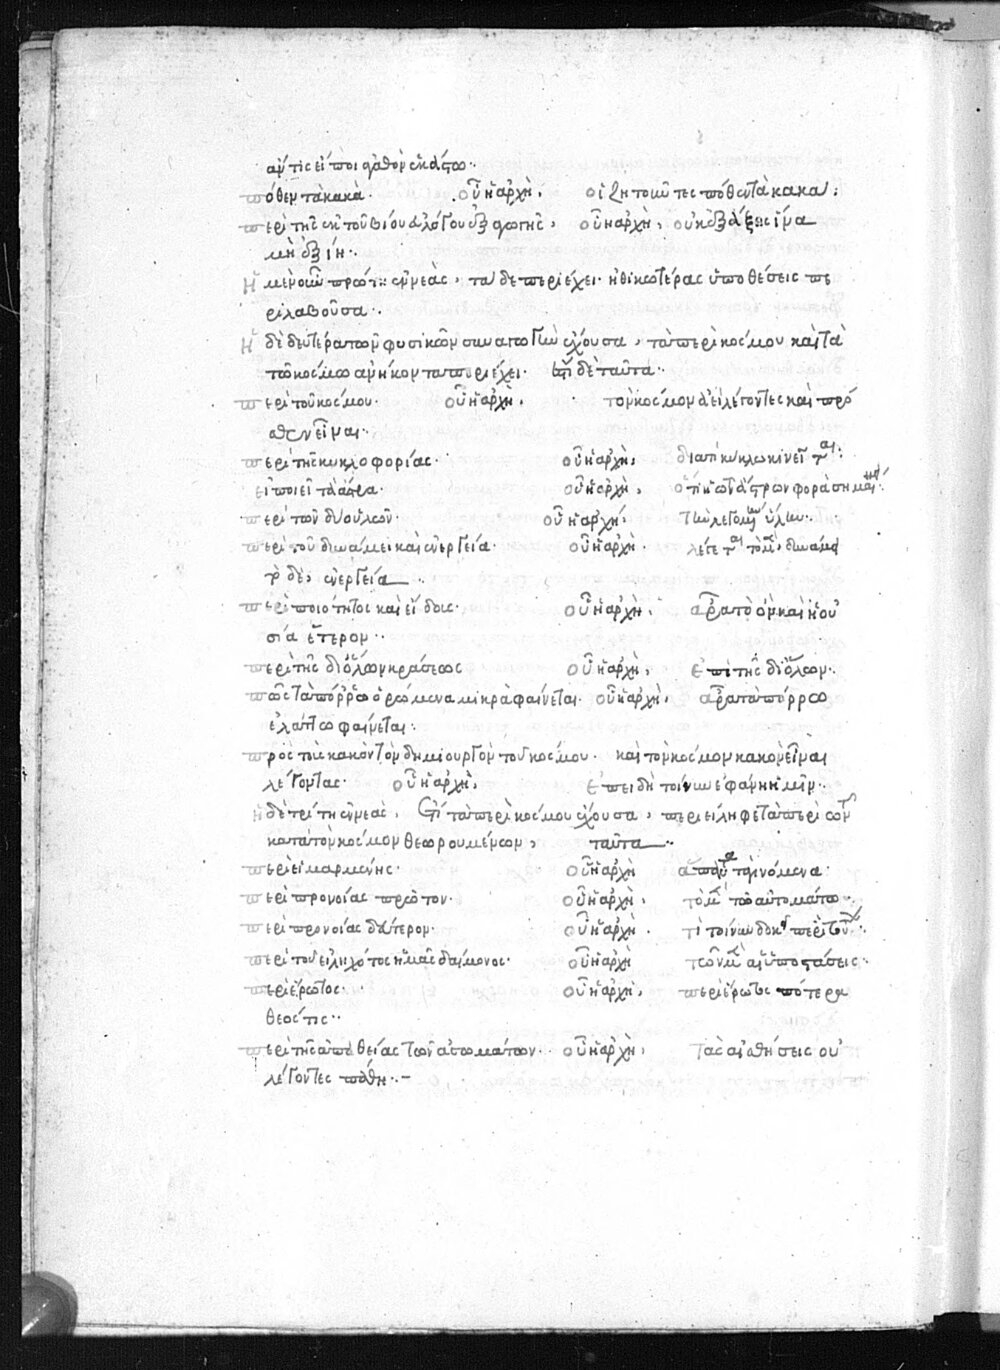 ἄν τις εἴποι ἀγαθὸν ἑκάστω·
πόθεν τὰ κακά· οὗ ἡ ἀρχή, οἱ ζητοῦντες πόθεν τὰ κακα:
περὶ τῆς ἐκ τοῦ βίου ἀλόγου ἐξαγωγῆς, οὗ ἡ ἀρχή, οὐκ ἐξάξεις ἵνα
μὴ ἐξίη·
ἡ μὲν οὖν πρώτη ἐννεὰς, τάδε περιέχει· ἠθικωτέρας ὑποθέσεις πε
ριλαβοῦσα·
ἡ δὲ δευτέρα τῶν φυσικῶν συναγωγὴν ἔχουσα, τὰ περὶ κόσμου καὶ τὰ
τῶ κόσμω ἀνήκοντα περιέχει· ἔστι δὲ ταῦτα·
περὶ τοῦ κόσμου· οὗ ἡ ἀρχή, τὸν κόσμον ἀεὶ λέγοντες καὶ πρό
σθεν εἶναι·
περὶ τῆς κυκλοφορίας· οὗ ἡ ἀρχή, διατί κύκλω κινεῖται:
εἰ ποιεῖ τὰ ἄστρα· οὗ ἡ ἀρχή, ὅτι ἡ τῶν ἄστρων φορὰ σημαίνει·
περὶ τῶν δύο ὑλῶν· οὗ ἡ ἀρχή, τὴν λεγομένην ὕλην·
περὶ τοῦ δυνάμει καὶ ἐνεργεία· οὗ ἡ ἀρχή· λέγεται τὸ μὲν, δυνάμει
τὸ δὲ, ἐνεργεία·
περὶ ποιότητος καὶ εἴδους· οὗ ἡ ἀρχή, ἆρα τὸ ὂν καὶ ἡ οὐ
σία ἕτερον·
περὶ τῆς διόλων κράσεως οὗ ἡ ἀρχή, ἐπὶ τῆς διόλων·
πῶς τὰ πόρρω ὁρώμενα μικρὰ φαίνεται· οὗ ἡ ἀρχή, ἆρα τὰ πόρρω
ἐλάττω φαίνεται·
πρὸς τοὺς κακὸν τὸν δημιουργὸν τοῦ κόσμου· καὶ τὸν κόσμον κακὸν εἶναι
λέγοντας· οὗ ἡ ἀρχή, ἐπειδὴ τοίνυν ἐφάνη ἡμῖν·
ἡ δὲ τρίτη ἐννεὰς, ἔτι τὰ περὶ κόσμου ἔχουσα, περιείληφε τὰ περὶ τῶν
κατὰ τὸν κόσμον θεωρουμένων, ταῦτα·
περὶ εἱμαρμένης· οὗ ἡ ἀρχή ἅπαντα τὰ γινόμενα·
περὶ προνοίας πρῶτον· οὗ ἡ ἀρχή, τὸ μὲν τῶ αὐτομάτω·
περὶ προνοίας δεύτερον· οὗ ἡ ἀρχή· τί τοίνυν δοκεῖ περὶ τούτων·
περὶ τοῦ εἰληχότος ἡμᾶς δαίμονος· οὗ ἡ ἀρχή τῶν μὲν αἱ ὑποστάσεις·
περὶ ἔρωτος· οὗ ἡ ἀρχή, περὶ ἔρωτος πότερα
θεός τις·
περὶ τῆς ἀπαθείας τῶν ἀσωμάτων· οὗ ἡ ἀρχή, τὰς αἰσθήσεις οὐ
λέγοντες πάθη·–